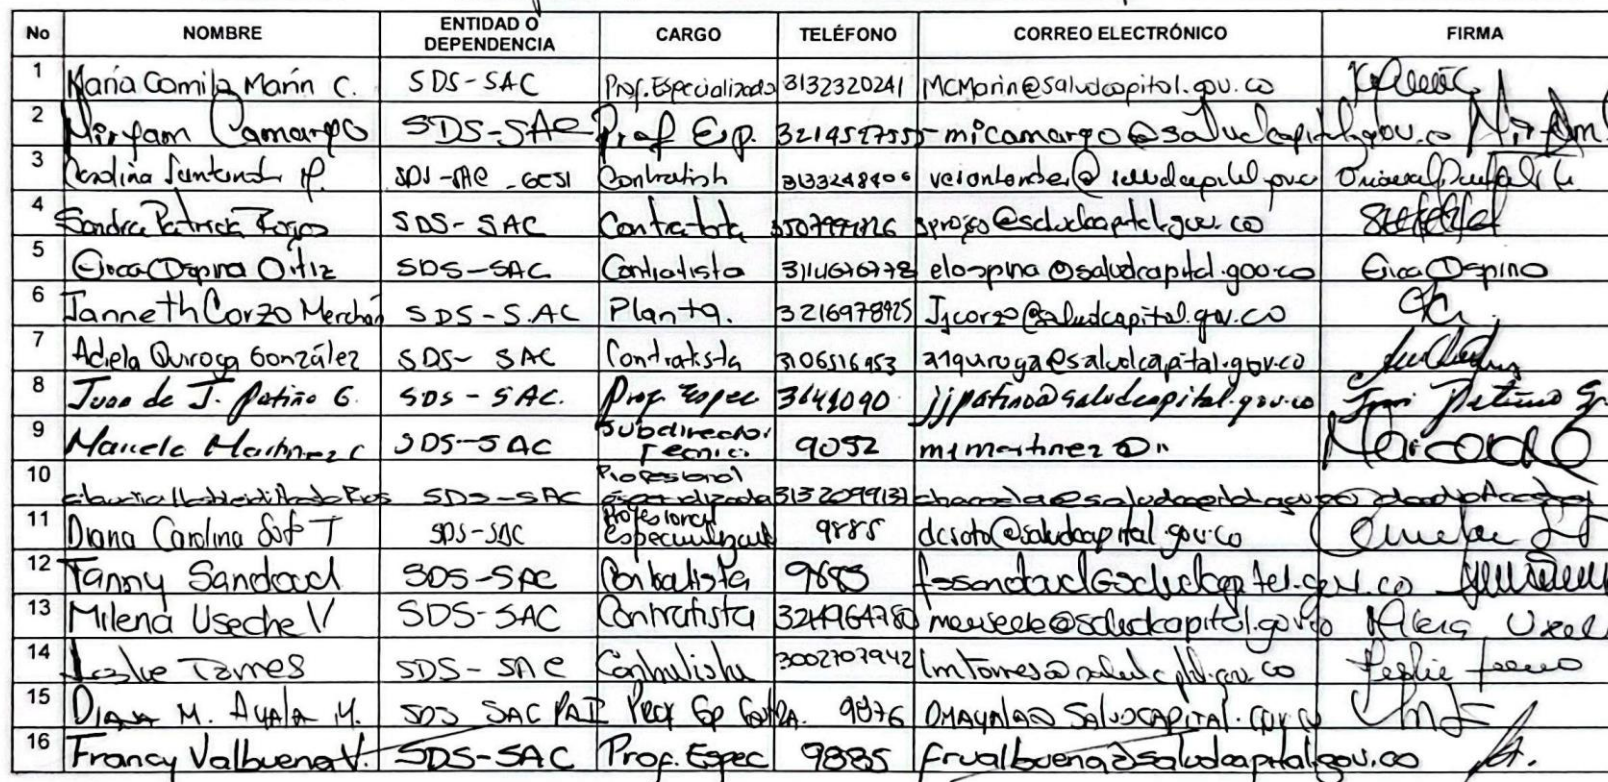 No NOMBRE ENTIDAD O DEPENDENCIA CARGO TELÉFONO CORREO ELECTRÓNICO FIRMA
1 Maria Camila Marín C. SDS-SAC Prof. Especializado 3132320241 MCMarin@saludcapital.gov.co
2 Miryam Camargo SDS-SAC Prof Esp. micamargo@saludcapital.gov.co
3 Carolina SDS-SAC-GCSI Contratista 3133248406
4 Sandra Patricia Rojas SDS-SAC Contratista sprojas@saludcapital.gov.co
5 Erica Ospina Ortiz SDS-SAC Contratista elospina@saludcapital.gov.co Erica Ospina
6 Janneth Corzo Merchán SDS-S.AC Planta. 3216978925 Jjcorzo@saludcapital.gov.co
7 Adiela Quiroga González SDS-SAC Contratista 3106516953 a1quiroga@saludcapital.gov.co
8 Juan de J. Patiño G. SDS-SAC. Prof. Espec 3649090 jjpatino@saludcapital.gov.co
9 Marcela Martinez C SDS-SAC Subdirector Tecnico 9052 m1martinez@"
10 SDS-SAC Profesional especializada 3132099137
11 Diana Carolina Soto T SDS-SAC Profesional especializada 9885 dcsoto@saludcapital.gov.co
12 Fanny Sandoval SDS-SAC Contratista 9683 fssandoval@saludcapital.gov.co
13 Milena Useche V SDS-SAC Contratista 3214964780 Milena Useche
14 Leslie Torres SDS-SAC Contratista 3002707942 lmtorres@saludcapital.gov.co Leslie Torres
15 Diana M. Ayala M. SDS SAC PAI Prof Esp 9876 DMAYALA@SALUDCAPITAL.GOV.CO
16 Francy Valbuena V. SDS-SAC Prof. Espec 9885 frvalbuena@saludcapital.gov.co